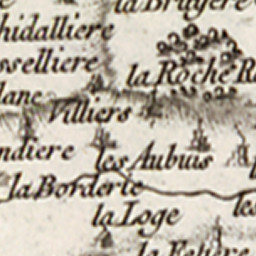 la Bruyere
hidalliere
sselliere
la Roche Ra
lane
Villiers
ndiere
les Aubuis
la Borderie
les
la Loge
la Faliere